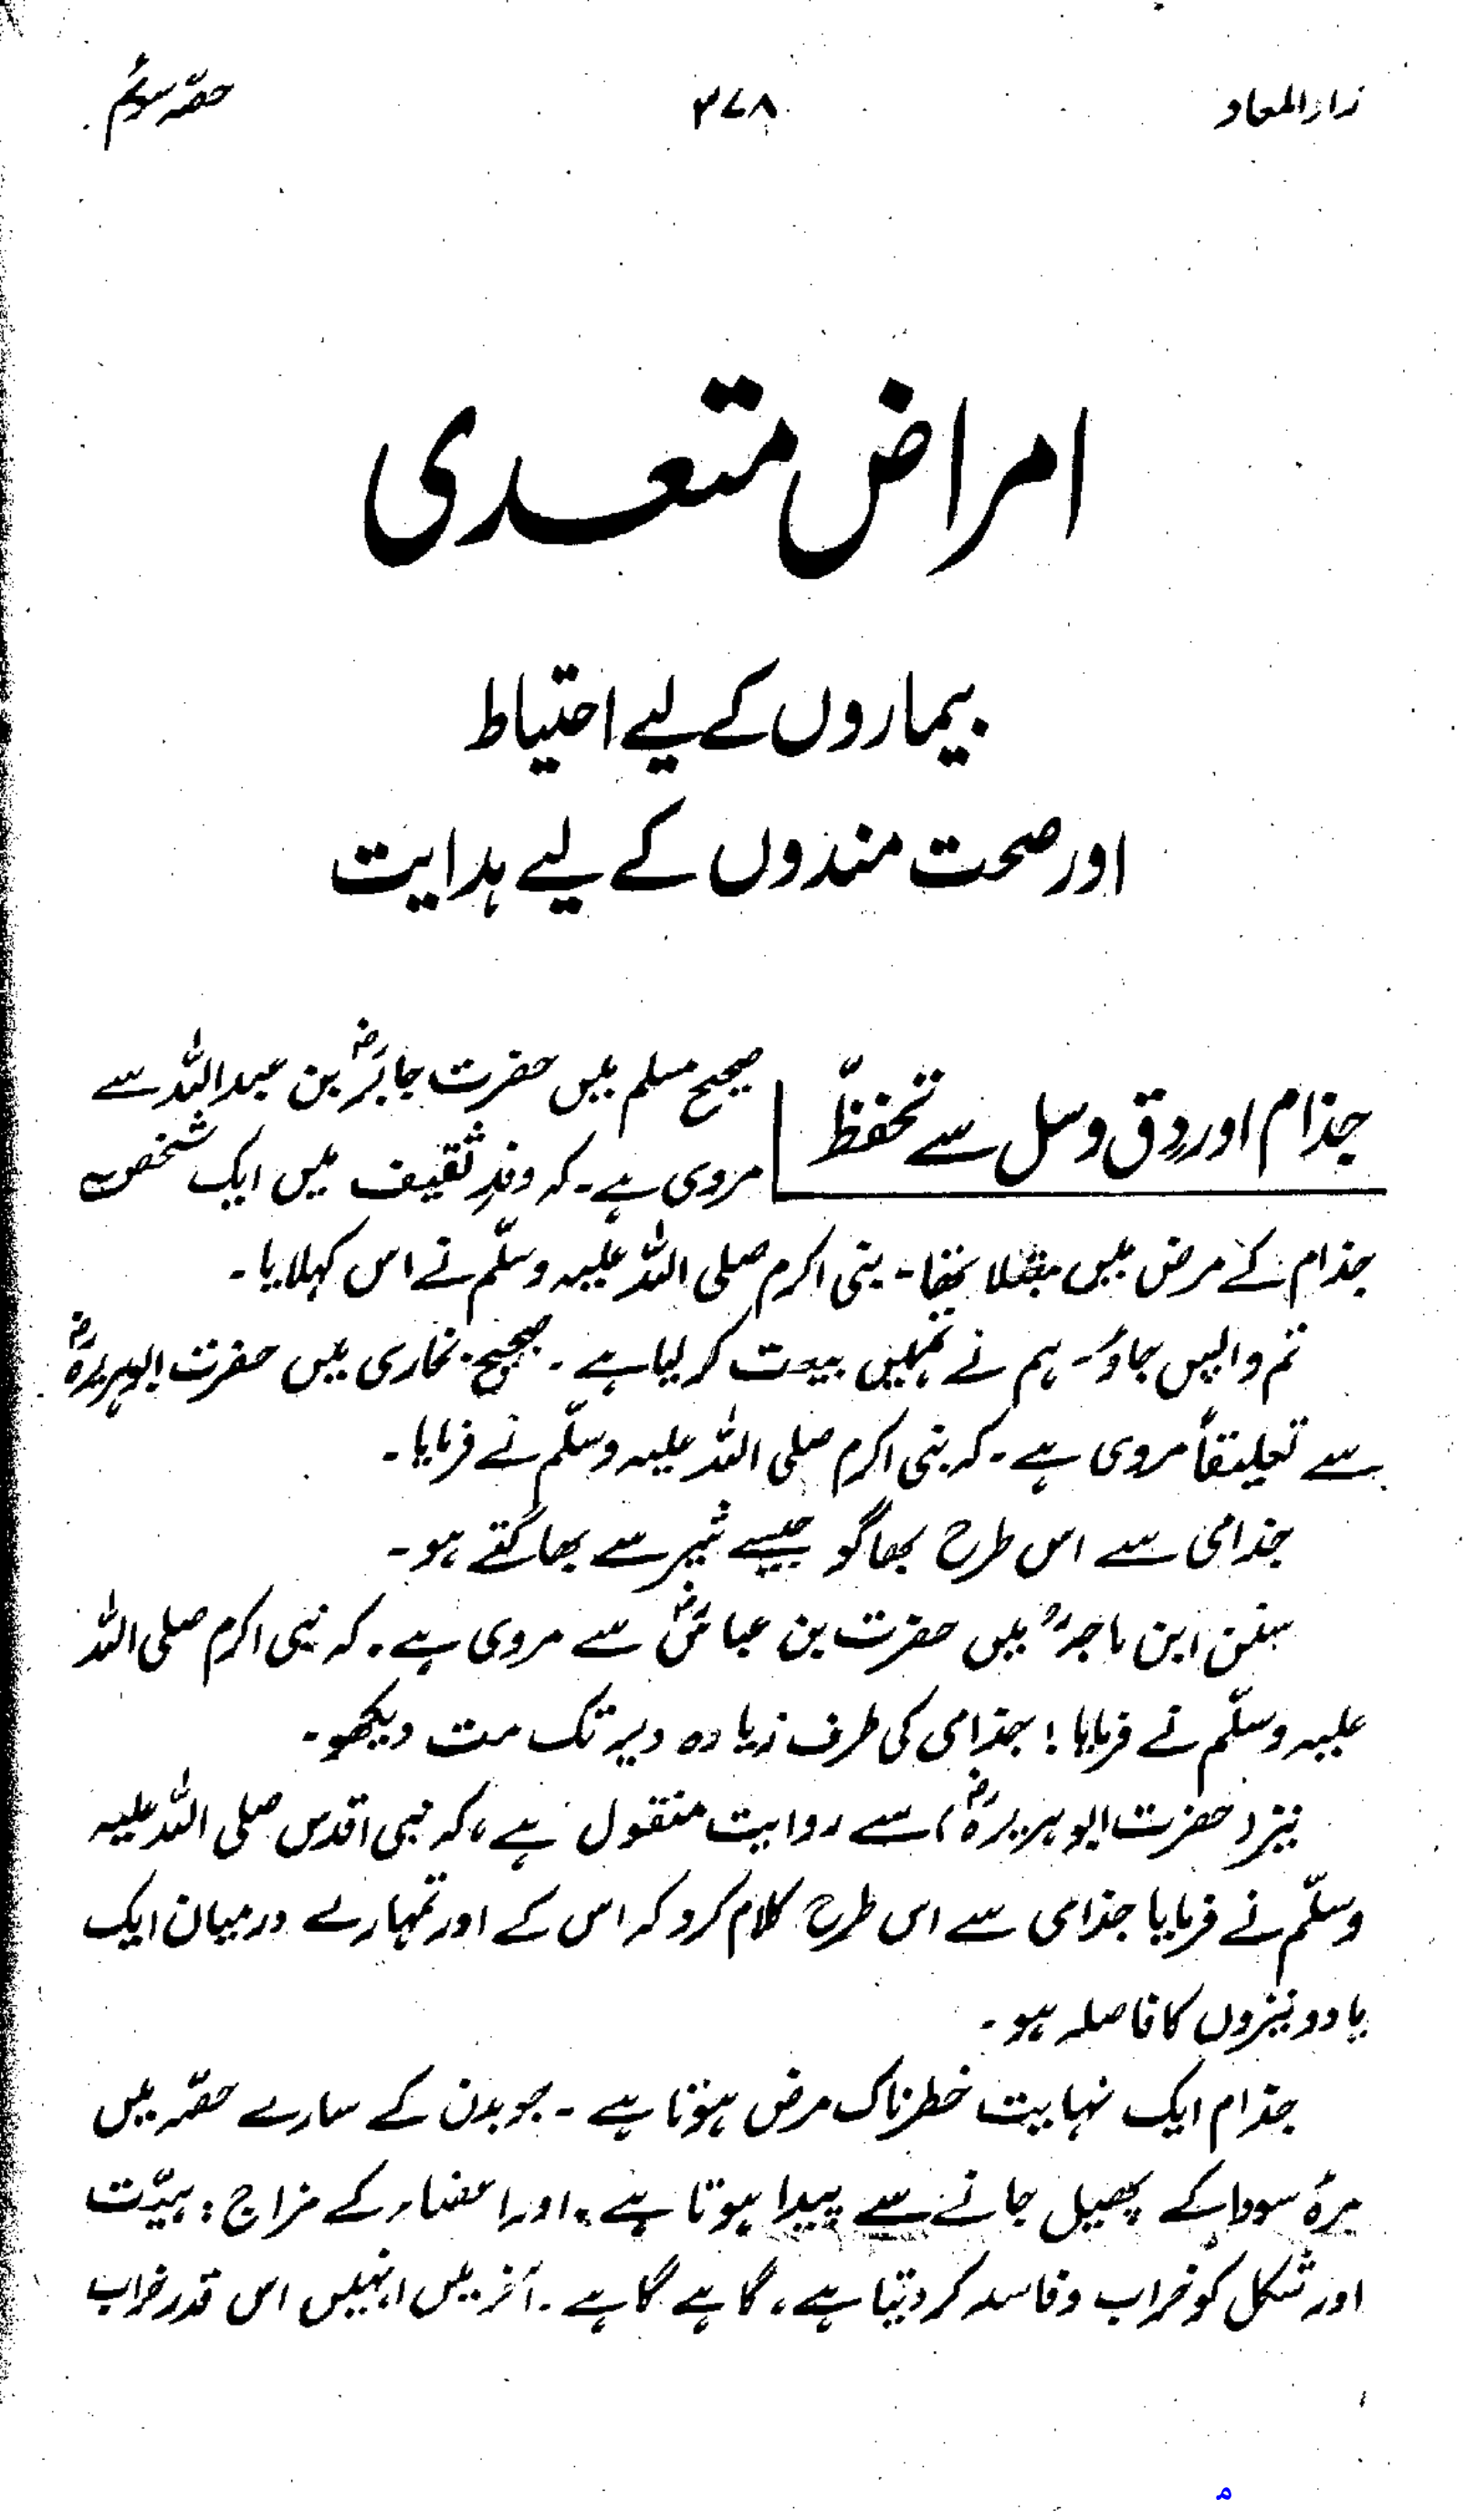 زاد المعاد
۳۷۸
حصّہ سوئم
امراض متعدی
بیماروں کے لیے احتیاط
اور صحت مندوں کے لیے ہدایت
جذام اور دق وسل سے تحفظّ
صحیح مسلم میں حضرت جابرؓ بن عبداللہ سے
مروی ہے۔ کہ وفدِ ثقیف میں ایک شخص
جذام کے مرض میں مبتلا تھا۔ نبی اکرم صلی اللہ علیہ وسلّم نے اس کہلایا۔
تم واپس جاؤ۔ ہم نے تمہیں بیعت کر لیا ہے۔ صحیح بخاری میں حضرت ابوہریرہؓ
سے تعلیقاً مروی ہے۔ کہ نبی اکرم صلی اللہ علیہ وسلّم نے فرمایا۔
جذامی سے اس طرح بھاگو جیسے شیر سے بھاگتے ہو۔
سنن ابن ماجہؒ میں حضرت بن عباسؓ سے مروی ہے۔ کہ نبی اکرم صلی اللہ
علیہ وسلّم نے فرمایا! جذامی کی طرف زیادہ دیر تک مت دیکھو۔
نیز (حضرت ابو ہریرہؓ) سے روایت منقول ہے، کہ نبی اقدس صلی اللہ علیہ
وسلّم نے فرمایا جذامی سے اس طرح کلام کرو کہ اس کے اور تمہارے درمیان ایک
یا دو نیزوں کا فاصلہ ہو۔
جذام ایک نہایت خطرناک مرض ہوتا ہے۔ جو بدن کے سارے حصّہ میں
مرۂ سودا کے پھیل جانے سے پیدا ہوتا ہے، اور اعضاء کے مزاج، ہیئت
اور شکل کو خراب و فاسد کر دیتا ہے، گاہے گاہے۔ آخر میں انہیں اس قدر خراب